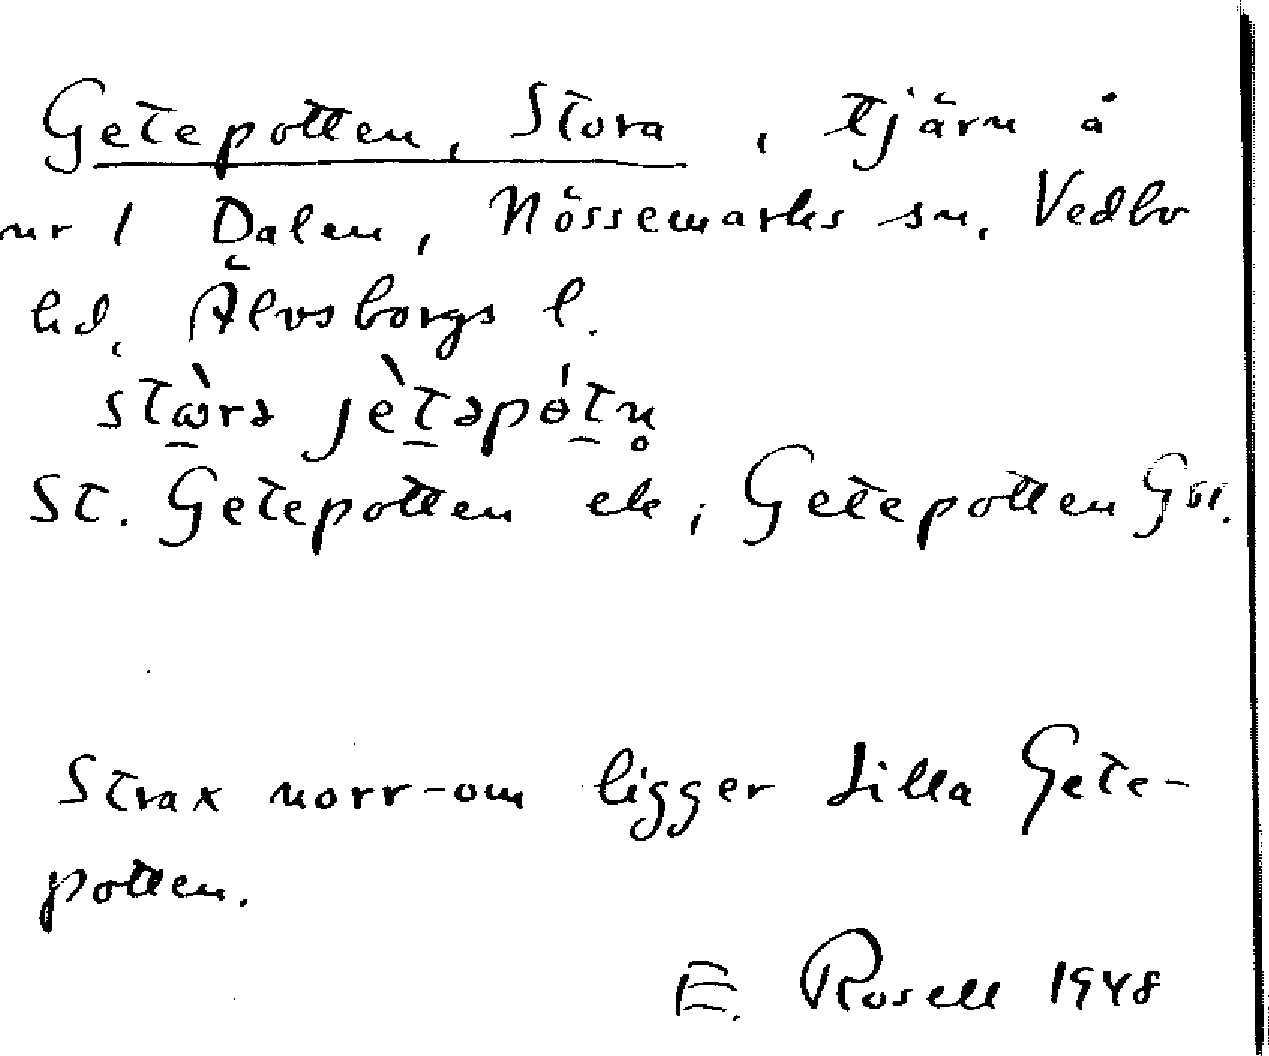 Getepotten, Stora, tjärn å
nr 1 Dalen, Nössemarks sn, Vedbo
hd, Älvsborgs l.
stὼrə jètəpótn̥
St. Getepotten ek, Getepotten Gsk.
Strax norr-om ligger Lilla Gete-
potten.
E. Rosell 1948